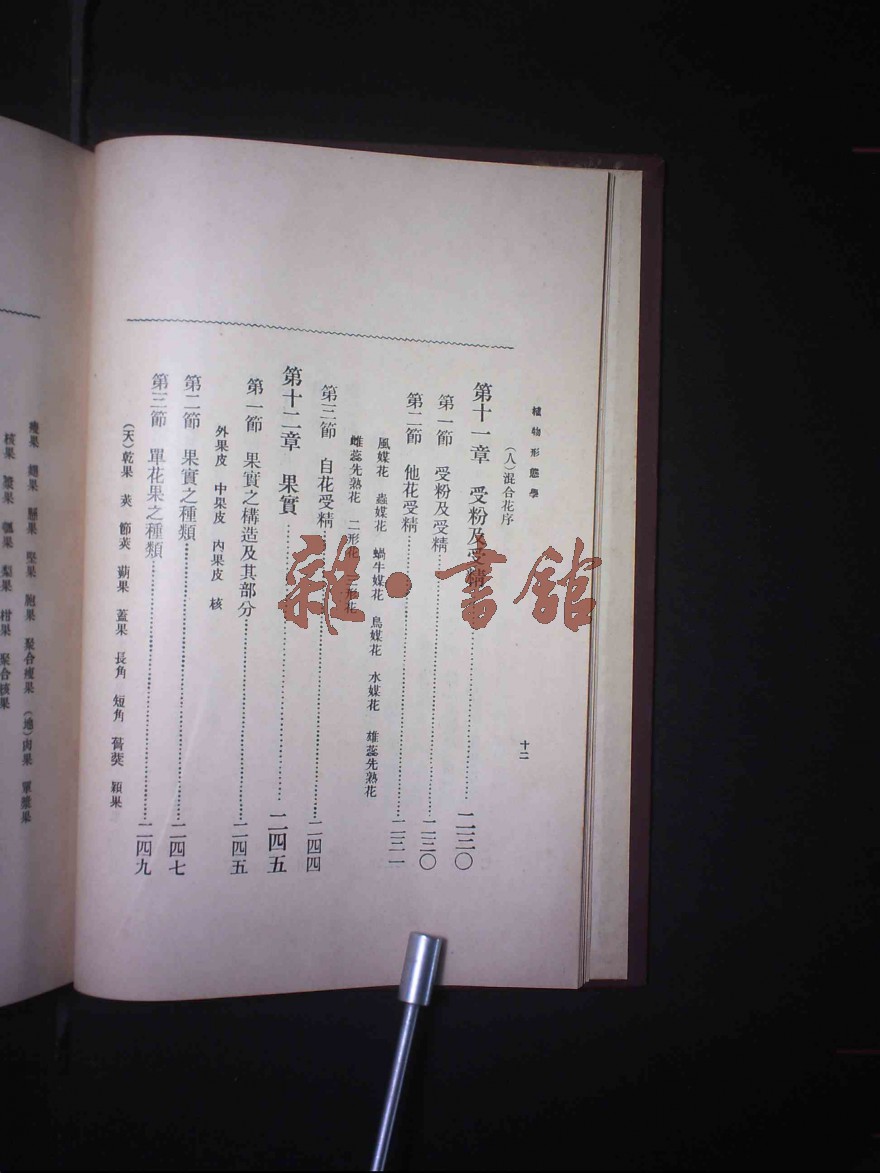 植物形態學
十二
(人)混合花序
第十一章 受粉及受精 二三〇
第一節 受粉及受精 二三〇
第二節 他花受精 二三一
風媒花 蟲媒花 蝸牛媒花 鳥媒花 水媒花 雄蕊先熟花
雌蕊先熟花 二形花 形花
第三節 自花受精 二四四
第十二章 果實 二四五
第一節 果實之構造及其部分 二四五
外果皮 中果皮 內果皮 核
第二節 果實之種類 二四七
第三節 單花果之種類 二四九
(天)乾果 莢 節莢 蒴果 蓋果 長角 短角 蓇葖 穎果
瘦果 翅果 懸果 堅果 胞果 聚合瘦果 (地)肉果 單漿果
核果 漿果 瓠果 梨果 柑果 聚合核果
雜·書館